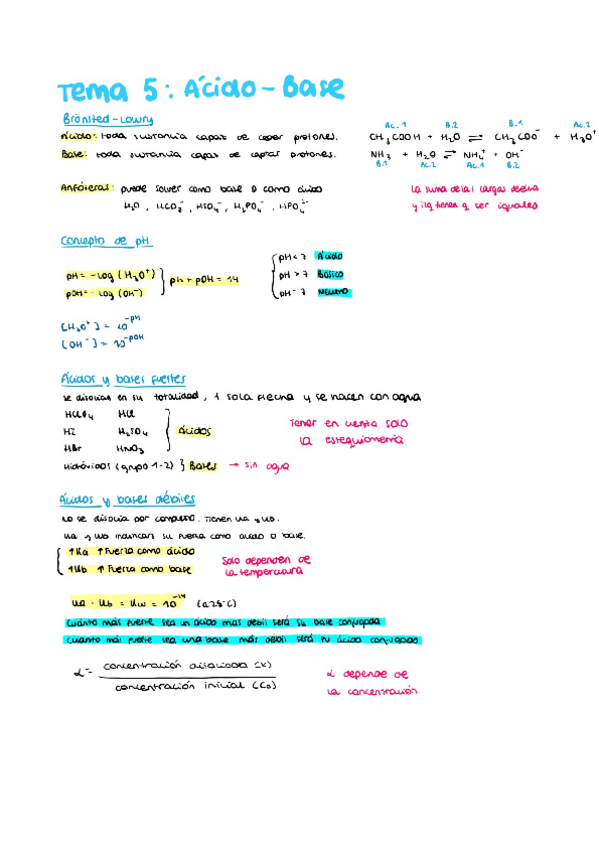 Tema 5: Ácido-Base
Brönsted-Lowry
Ácido: toda sustancia capaz de ceder protones.
Base: toda sustancia capaz de captar protones.
Ac.1 B.2 B.1 Ac.2
CH₃COOH + H₂O ⇌ CH₃COO⁻ + H₃O⁺
NH₃ + H₂O ⇌ NH₄⁺ + OH⁻
B.1 Ac.2 Ac.1 B.2
Anfóteras: puede actuar como base o como ácido
H₂O, HCO₃⁻, HSO₄⁻, H₂PO₄⁻, HPO₄²⁻
La suma de las cargas derecha
y izq tienen q ser iguales
Concepto de pH
pH = -log (H₃O⁺)
pOH = -log (OH⁻)
pH + pOH = 14
pH < 7 Ácido
pH > 7 Básico
pH = 7 Neutro
[H₃O⁺] = 10^-pH
[OH⁻] = 10^-pOH
Ácidos y bases fuertes
se disocian en su totalidad, 1 sola flecha y se hacen con agua
HClO₄ HCl
HI H₂SO₄
HBr HNO₃
Ácidos
Tener en cuenta solo
la estequiometría
Hidróxidos (grupo 1-2) } Bases → sin agua
Ácidos y bases débiles
No se disocia por completo. Tienen Ka y Kb.
Ka y Kb indican su fuerza como ácido o base.
↑Ka ↑Fuerza como ácido
↑Kb ↑Fuerza como base
Solo dependen de
la temperatura
Ka · Kb = Kw = 10⁻¹⁴ (a 25°C)
Cuanto más fuerte sea un ácido más débil será su base conjugada
Cuanto más fuerte sea una base más débil será su ácido conjugado
α = concentración disociada (x)
concentración inicial (C₀)
α depende de
la concentración